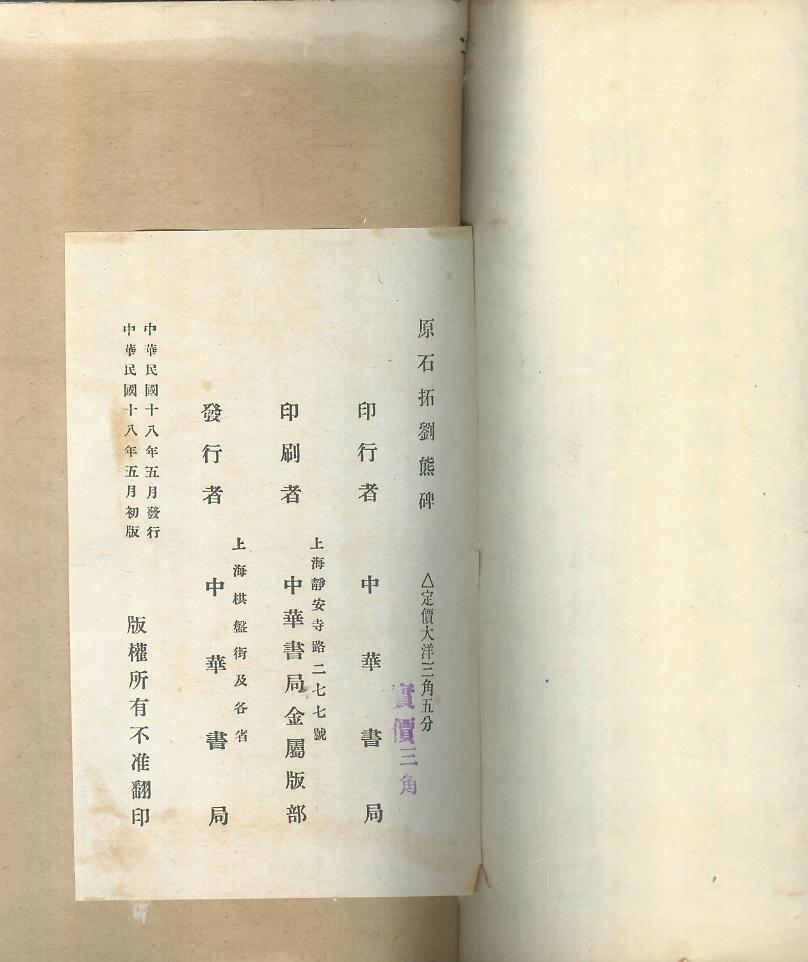 原石拓劉熊碑
△定價大洋三角五分
實價三角
印行者
中華書局
印刷者
上海靜安寺路二七七號
中華書局金屬版部
發行者
上海棋盤街及各省
中華書局
中華民國十八年五月發行
中華民國十八年五月初版
版權所有不准翻印